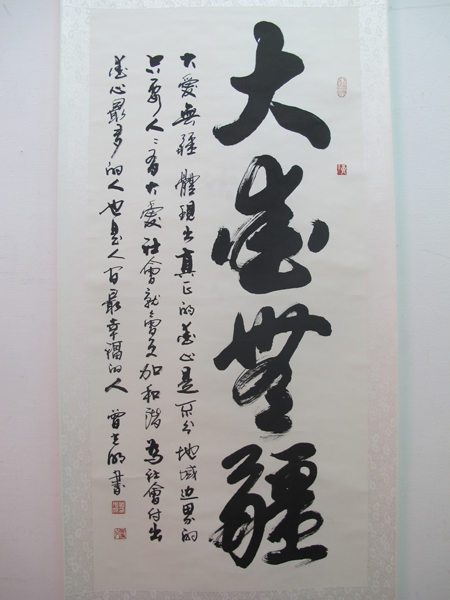 大愛無疆
大愛無疆體現出真正的愛心是不分地域边界的
只要人々有大愛社會就會更加和谐為社會付出
愛心最多的人也是人间最幸福的人 曾 明書